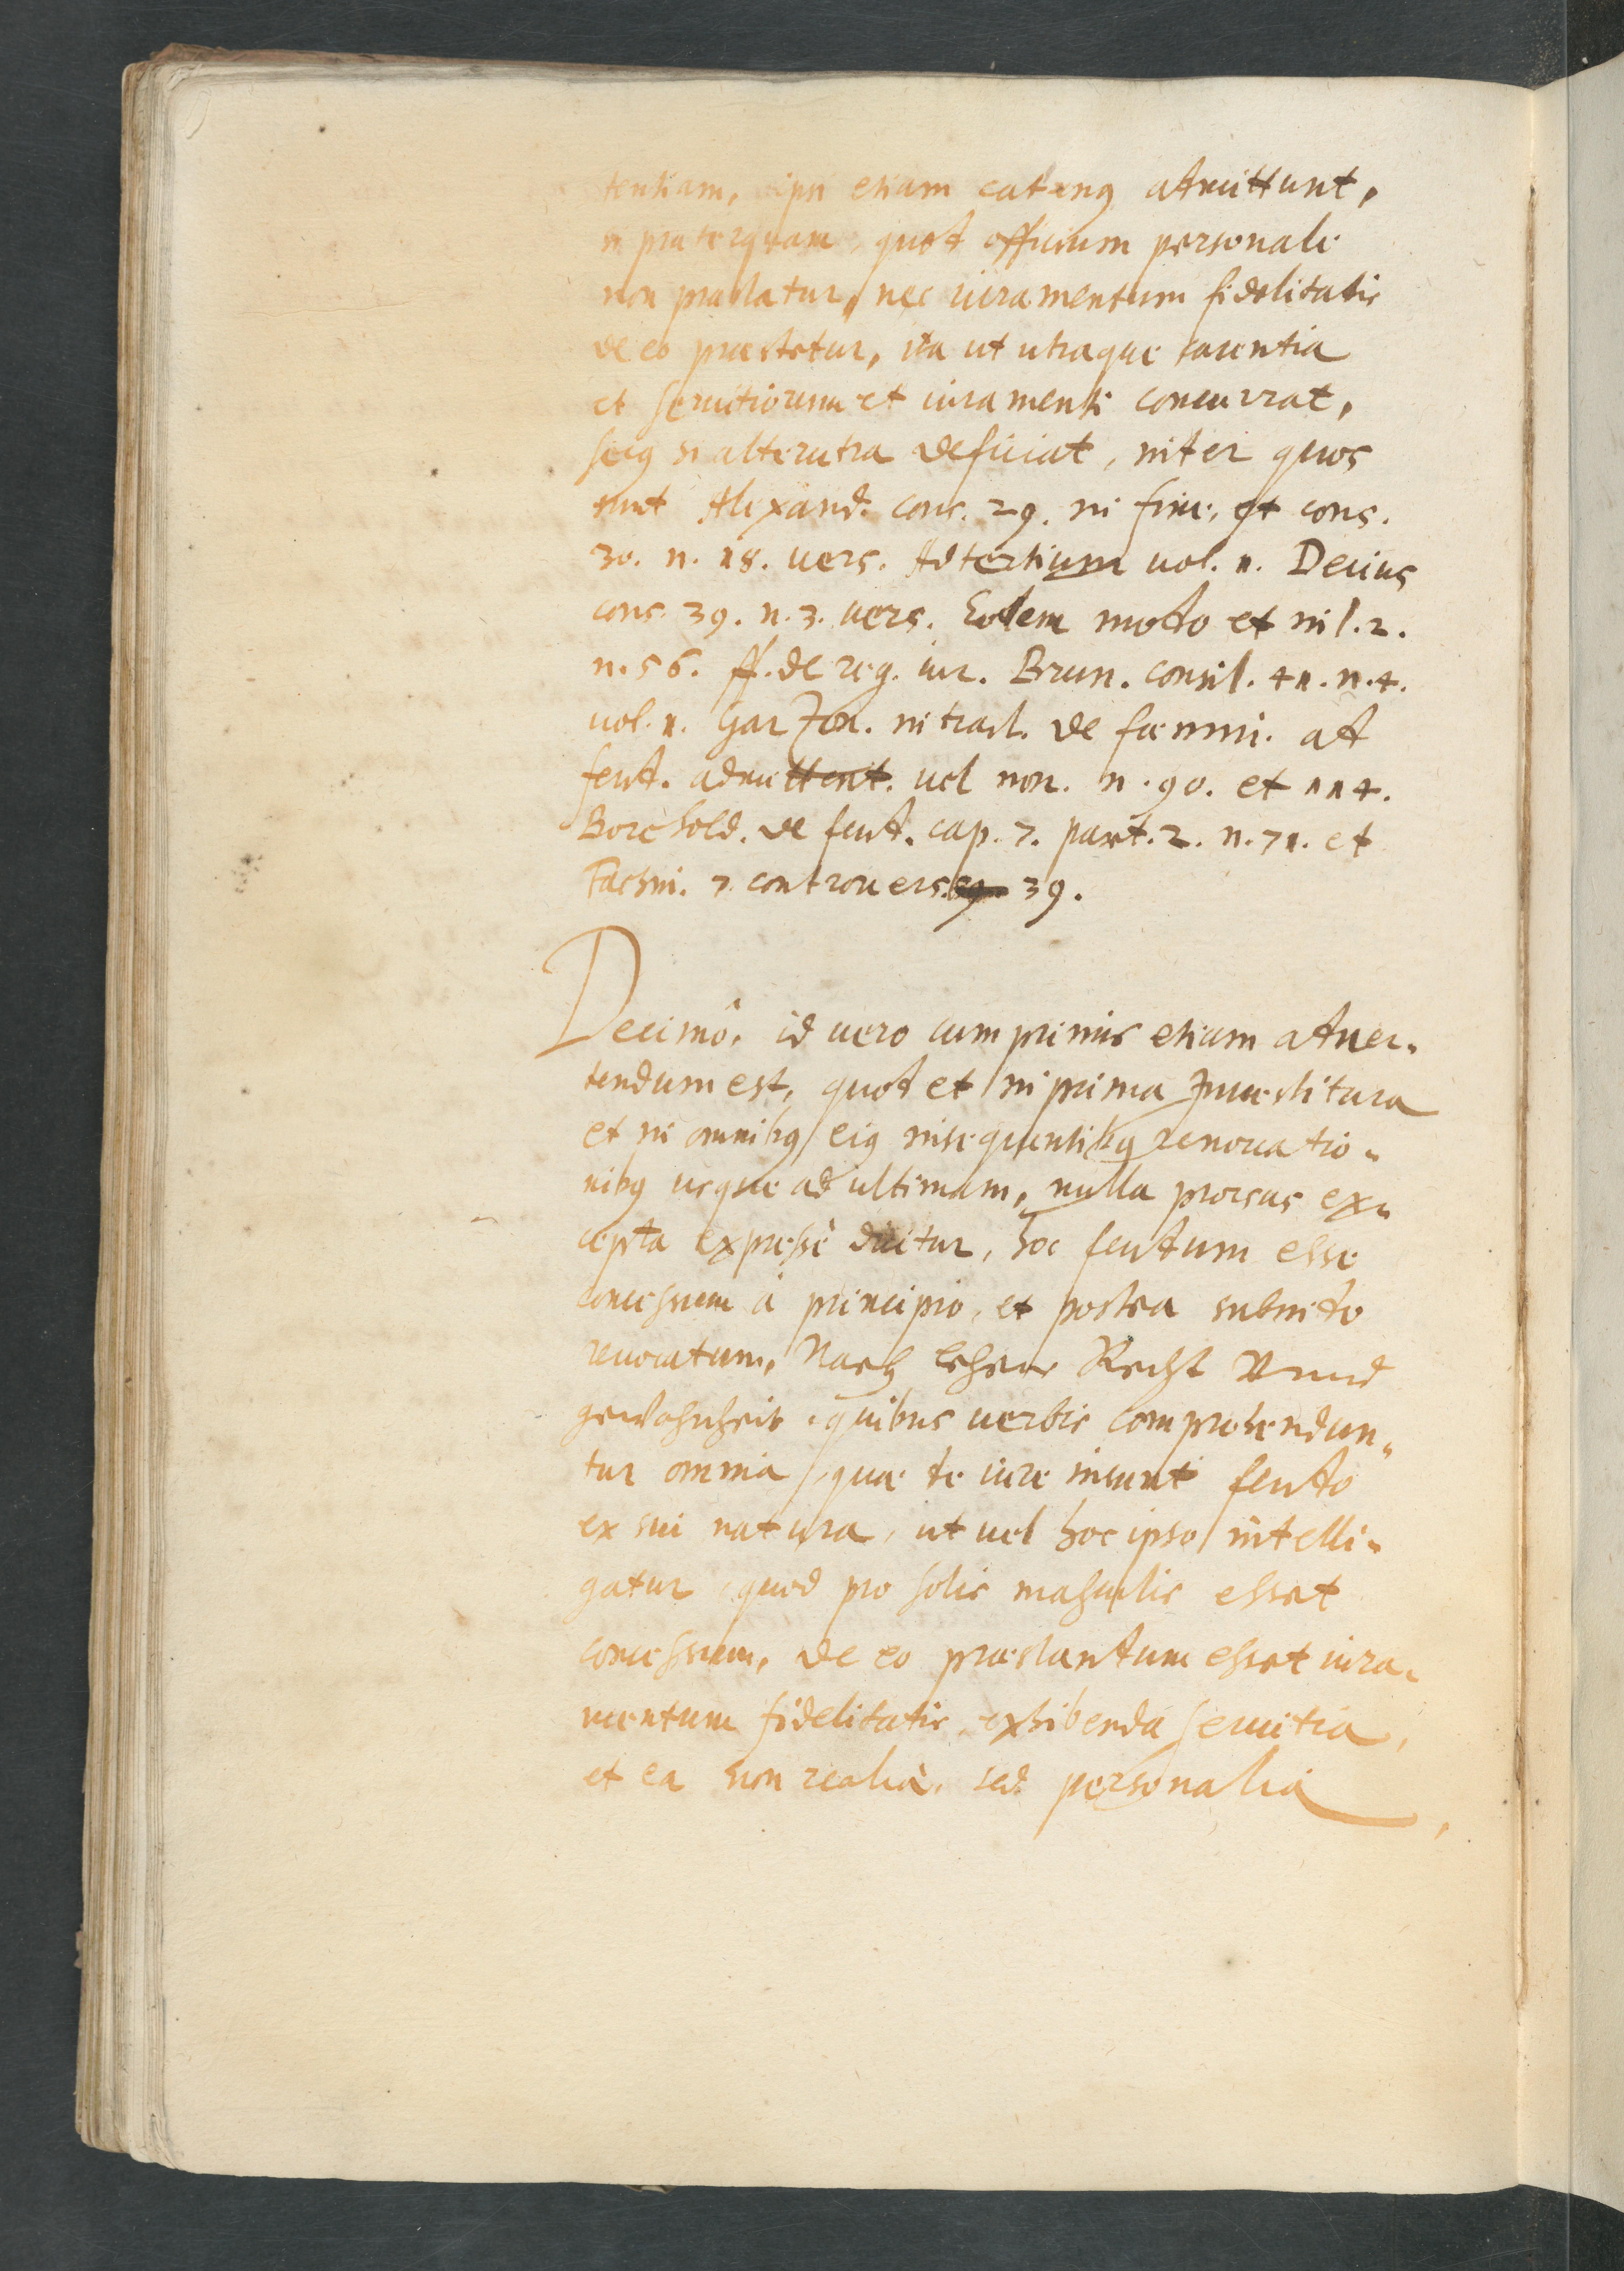 tentiam, ipsi etiam eatenus admittunt,
in praeterquam, quod officium personale
non praestatur, nec iuramentum fidelitatis
de eo praestetur, ita ut utraque carentia
et seruitiorum et iuramenti concurrat,
secus si alterutra deficiat, inter quos
sunt Alexand. cons. 29. in fine, et cons.
30. n. 18. vers. Ad tertium vol. 1. Decius
cons. 39. n. 3. vers. Eodem modo et in l. 2.
n. 56. ff. de reg. iur. Brun. consil. 41. n. 4.
vol. 1. Garzon. in tract. de foemini. ad
feud. admittent. vel non. n. 90. et 114.
Borchold. de feud. cap. 7. part. 2. n. 71. et
Fachin. 7. controuers. 39.
Decimô, id uero cum primis etiam aduer-
tendum est, quod et in prima Inuestitura
et in omnibus eius insequentibus renouatio-
nibus usque ad ultimam, nulla prorsus ex-
cepta expressè dicitur, hoc feudum esse
concessum à principio, et postea subinde
reuocatum, Nach Lehen Recht Vnnd
gewohnheit, quibus uerbis comprehendun-
tur omnia, quae de iure insunt feudo
ex sui natura, ut uel hoc ipso intelli-
gatur, quod pro solis masculis esset
concessum, de eo praestandum esset iura-
mentum fidelitatis, exhibenda seruitia,
et ea non realia, sed personalia,